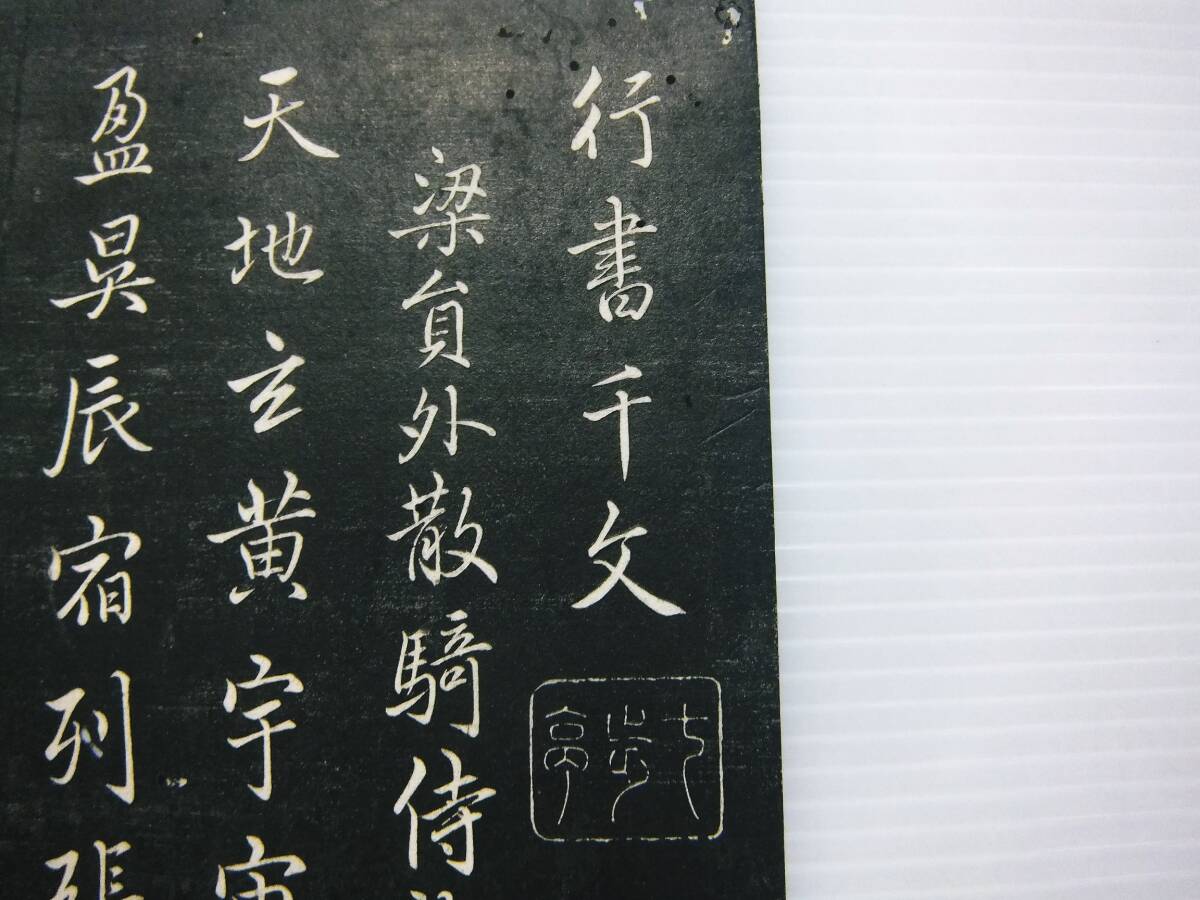 行書千文
七步亭
梁貟外散騎侍
天地玄黄宇宙
盈昃辰宿列張